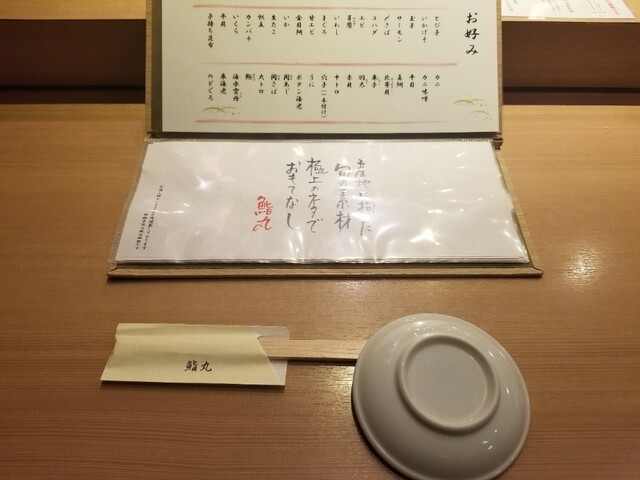 お好み
とび子
いかげそ
玉子
サーモン
〆さば
コハダ
エビ
いわし
まぐろ
甘エビ
金目鯛
いか
生たこ
帆立
カンパチ
いくら
平貝
子持ち昆布
カニ
カニ味噌
平目
真鯛
北寄貝
車子
羽太
赤貝
中トロ
穴子(一本付け)
うに
ボタン海老
関あじ
関さば
大トロ
鮑
車海老
のどぐろ
産地に拘った
旬の素材
極上のネタで
おもてなし
鮨丸
鮨丸